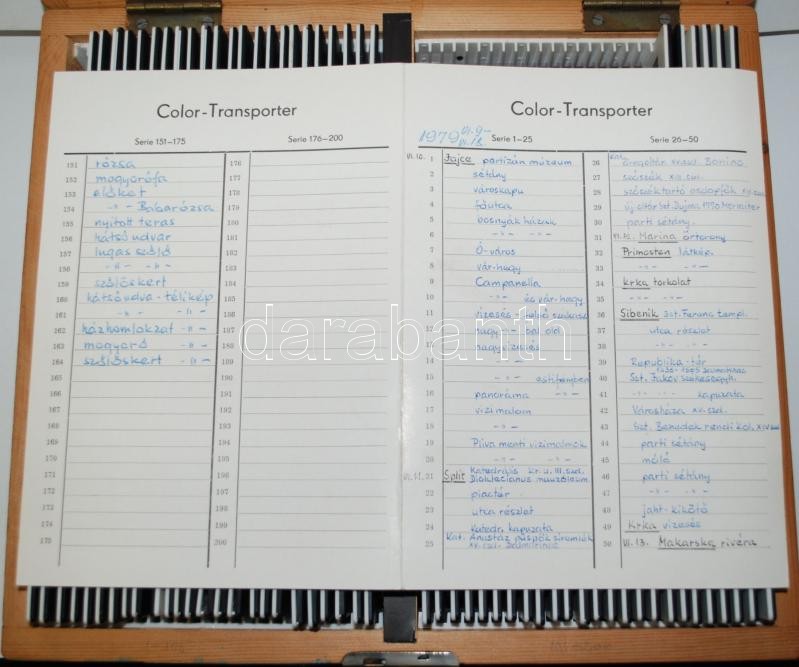 Color-Transporter
Serie 151–175
Serie 176–200
151 rózsa
152 mogyorófa
153 előkert
154 -"- Babarózsa
155 nyitott terasz
156 hátsó udvar
157 lugas szőlő
158 -"- -"-
159 szőlőskert
160 hátsó udva - télikép
161 -"- -"-
162 házhomlokzat -"-
163 mogyoró -"-
164 szőlőskert -"-
165
166
167
168
169
170
171
172
173
174
175
176
177
178
179
180
181
182
183
184
185
186
187
188
189
190
191
192
193
194
195
196
197
198
199
200
Color-Transporter
1979 VI.9–
VI.18.
Serie 1–25
Serie 26–50
VI.10. 1 Jajce partizán múzeum
2 sétány
3 városkapu
4 főutca
5 bosnyák házak
6 -"- -"-
7 Ó-város
8 vár-hegy
9 Campanella
10 -"- és vár-hegy
11 vízesés felső szakasz
12 nagy -"- bal old.
13 nagyvízesés
14
15 -"- esti fényben
16 panoráma -"-
17 vízimalom
18 -"-
19 Pliva menti vízimalmok
20 -"- -"-
VI.11. 21 Split Katedrális kr.u. III.szd.
Diokletianus mauzóleum
22 piactér
23 utca részlet
24 Katedr. kapuzata
25 Kat. Anastáz püspök síremlék
26
27
28
29
30 parti sétány.
31 VI.12. Marina őrtorony
32 Primosten látkép.
33 -"- -"-
34 Krka torkolat
35 -"- -"-
36 Sibenik Szt. Ferenc templ.
37 utca részlet
38 -"- -"-
39 Republika-tér
40 Szt. Jakov székesegyh.
41 -"- -"- kapuzata
42 Városháza XV.szd.
43 Szt. Benedek rendi kol.
44 parti sétány
45 móló
46 parti sétány
47 -"- -"-
48 jaht-kikötő
49 Krka vízesés
50 VI.13. Makarska rivéra
darabanth